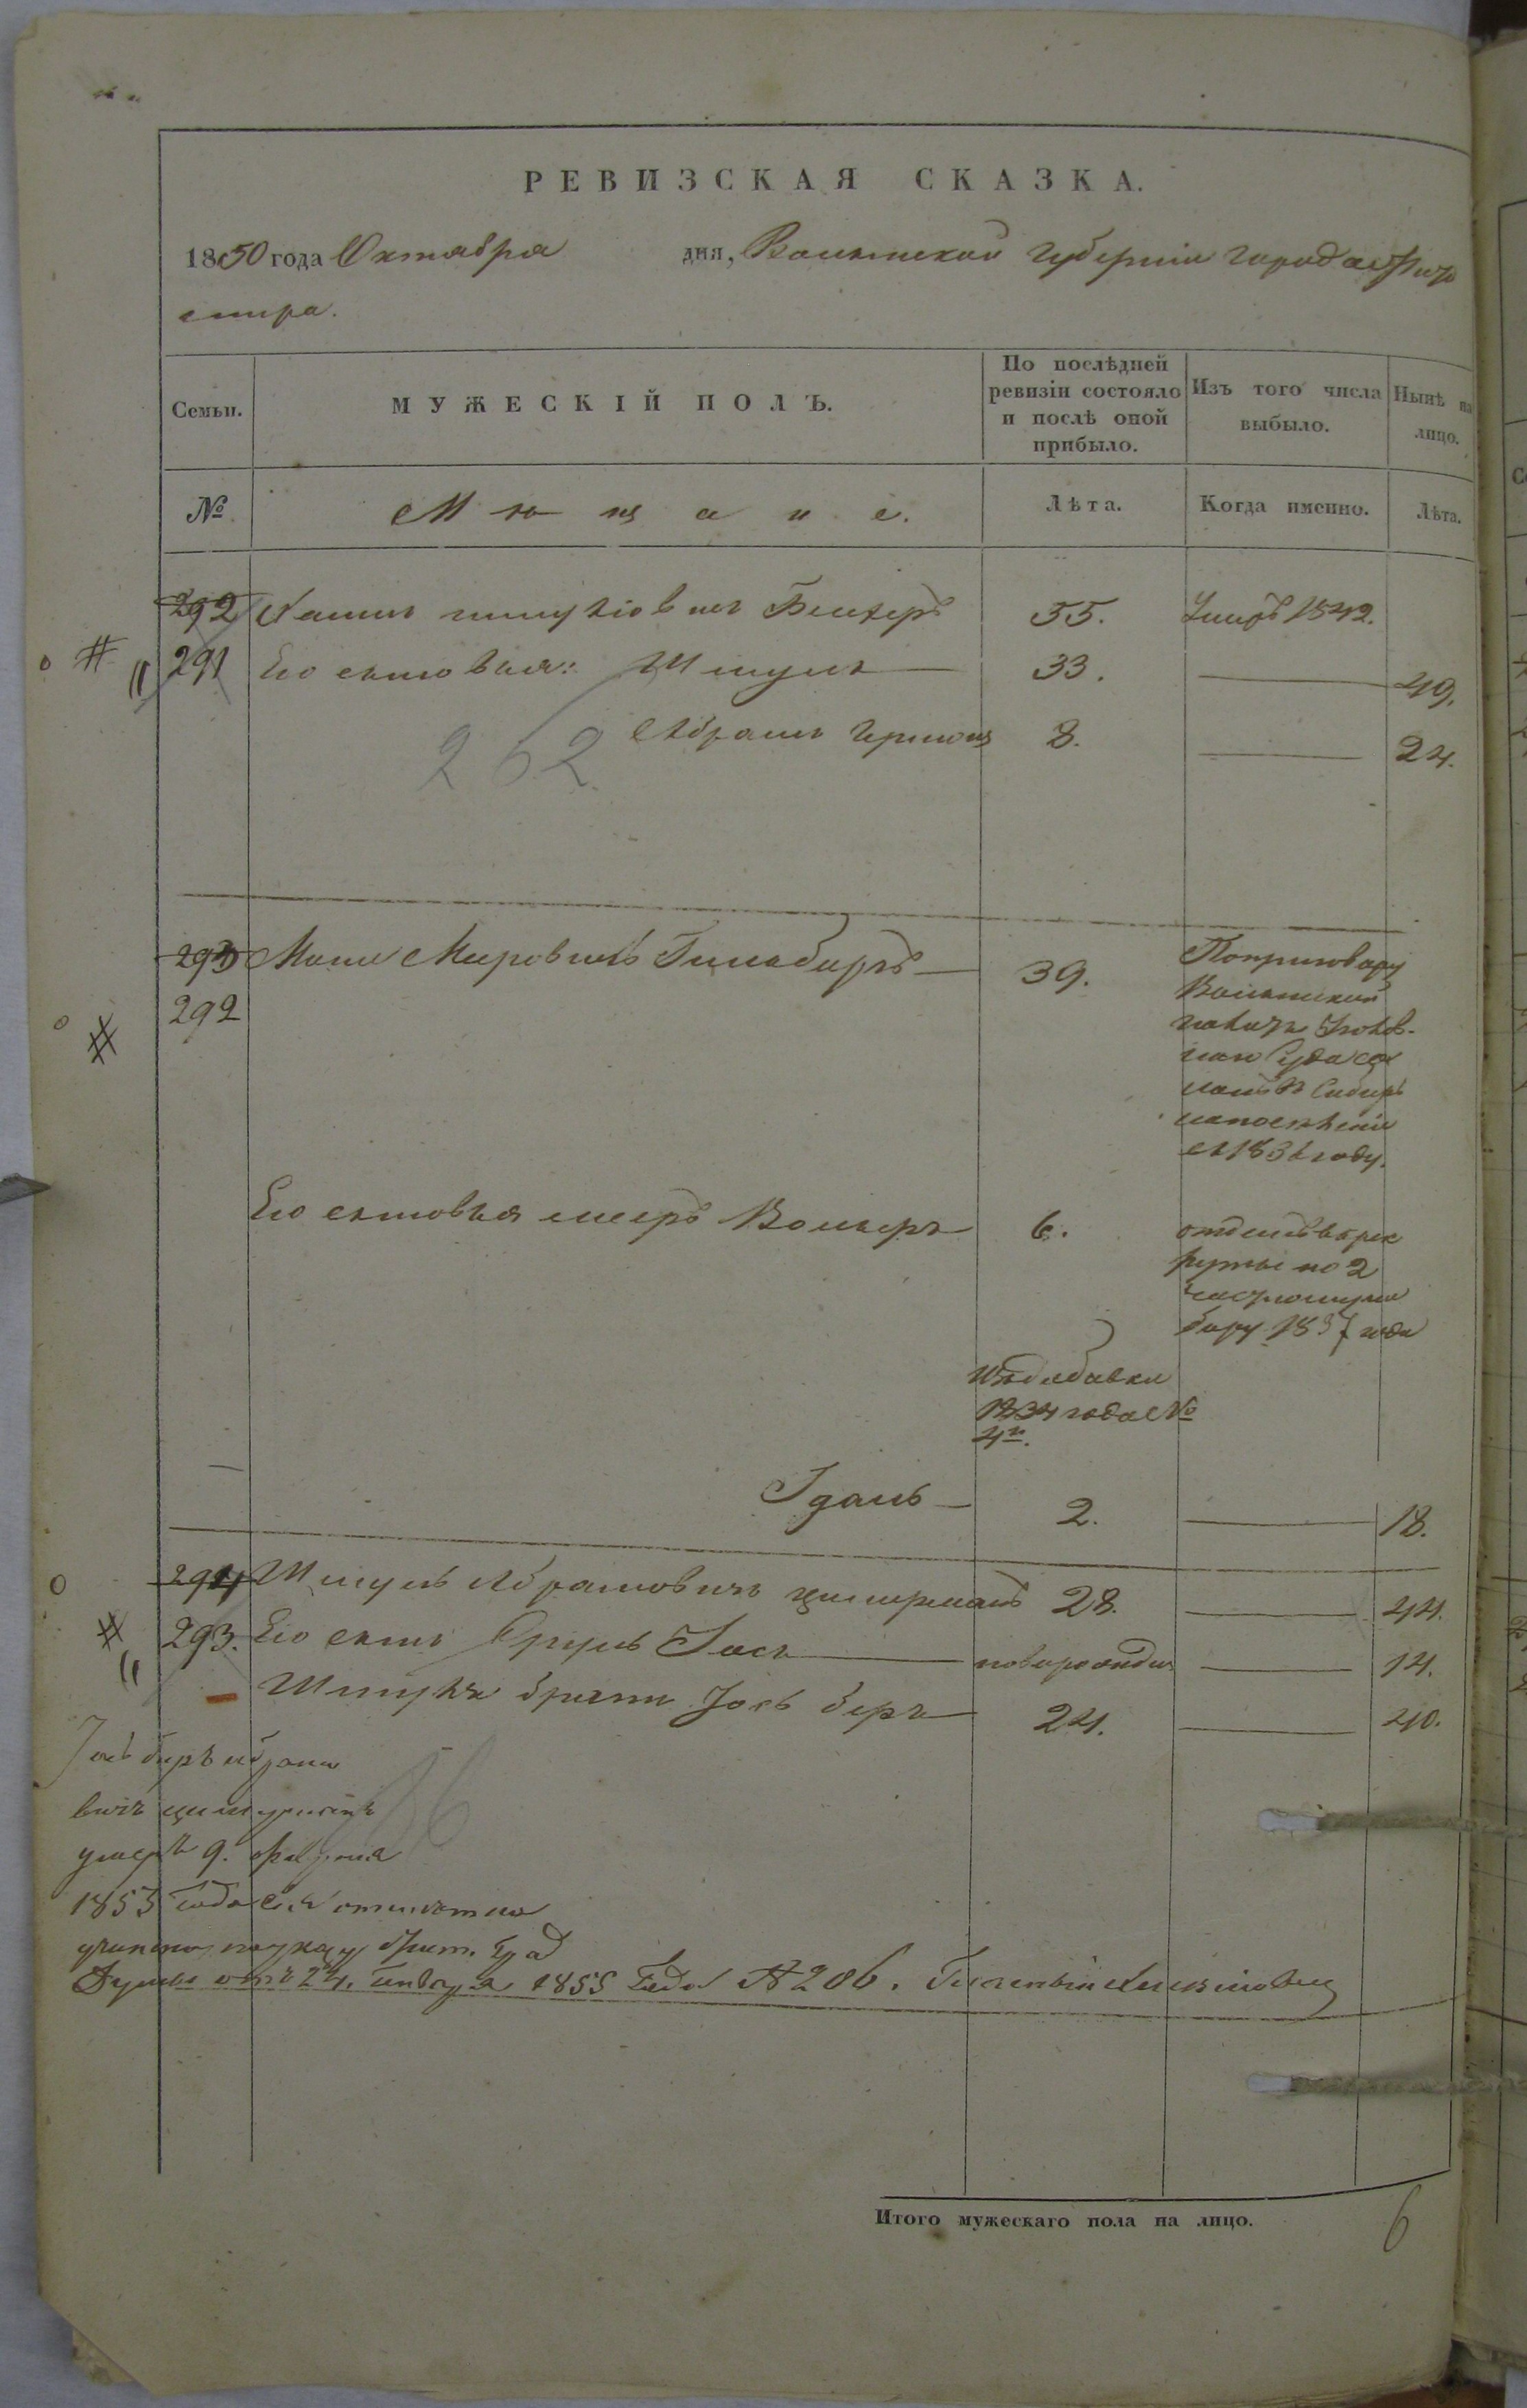 РЕВИЗСКАЯ СКАЗКА.
1850 года Октября дня, Волынской губернiи города Жито
мира.
Семьи.
МУЖЕСКIЙ ПОЛЪ.
По послѣдней ревизiи состояло и послѣ оной прибыло.
Изъ того числа выбыло.
Нынѣ на лицо.
№
Мѣщане.
Лѣта.
Когда именно.
Лѣта.
292 55. Умеръ 1842.
291 Его сыновья: Шмуль 33. 49.
Абрамъ Гершонъ 8. 24.
262
293 Мошко Мееровичъ 39. По приговору
292 Волынской
Суда со
сланъ въ Сибирь
на поселенiе
въ 1836 году.
Его сыновья Мееръ Волькеръ 6. отданъ въ рек
руты по 2
частному на
бору 1837 года
Изъ добавки
1834 года №
4й.
Іданъ 2. 18.
294 Шмуль Абрамовичъ Цимерманъ 28. 44.
293. Его сынъ Сруль Іось новорожден 14.
Шмуля братъ Іось Беръ 24. 40.
Іось Беръ Абрамо
вичъ Цимерманъ
умеръ 9. февраля
1853 года сiя отмѣтка
учинена по указу Жит. Град
Думы отъ 24. Января 1855 Года № 206.
Итого мужескаго пола на лицо. 6